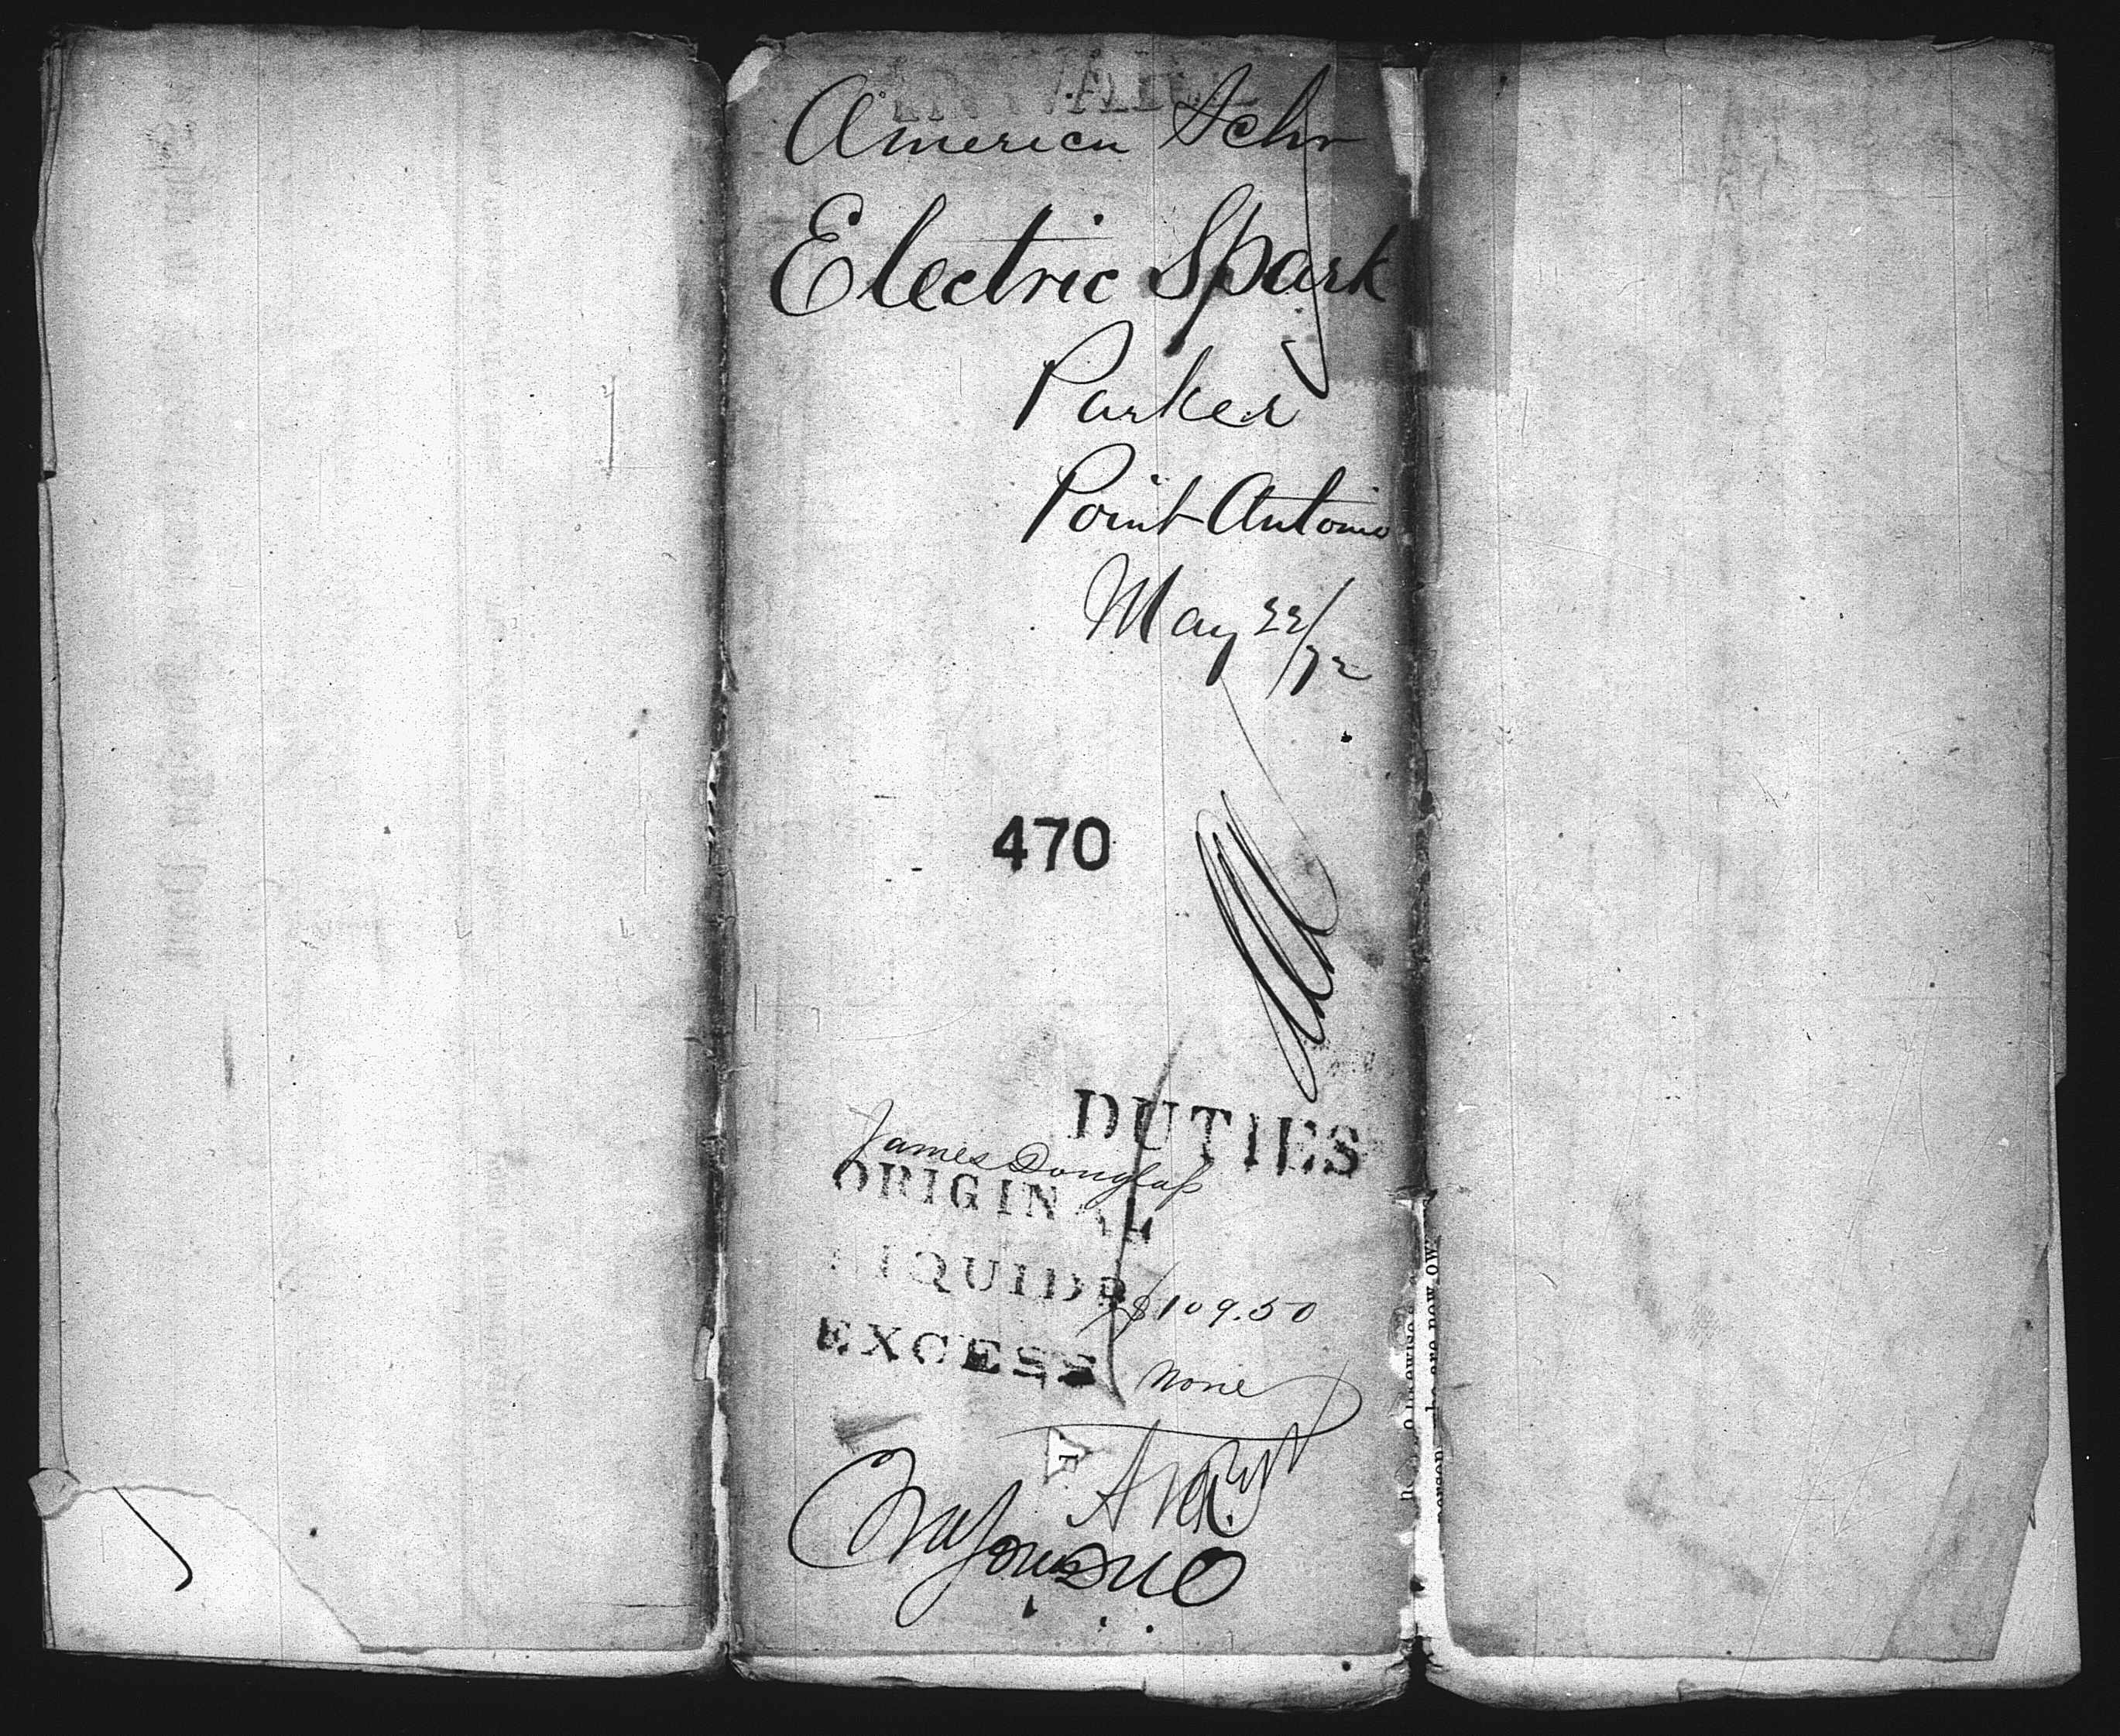 American Schr
Electric Spark
Parker
Point Antonio
May 22/72
470
DUTIES
James Douglass
ORIGINAL
LIQUIDD
$109.50
EXCESS
None